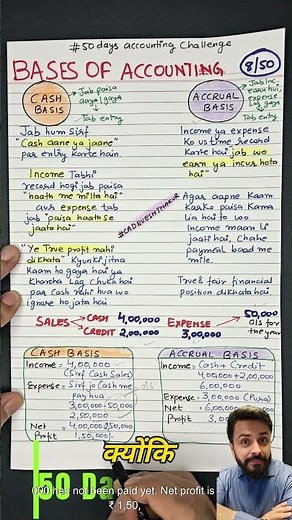 #50days accounting Challenge
BASES OF ACCOUNTING
8/50
CASH
BASIS
Jab paisa
aaye/gaya
Tab entry
ACCRUAL
BASIS
Jab Inc.
earn hui,
Expense
lag gaya
Tab entry
Jab hum Sirf
"Cash aane ya jaane"
par entry karte hain.
Income Tabhi
record hogi jab paisa
"haath me milta hai"
aur expense tab
jab "paisa haath se
jaata hai"
"Ye True profit nahi
dikhata" Kyunki jitna
Kaam ho gaya hai ya
Kharcha Lag chuka hai
par Cash nahi hua wo
ignore ho jata hai
#CADEVEIMTHAKUR
Income ya expense
Ko us time record
Karte hai jab wo
earn ya incur hota
hai"
Agar aapne Kaam
Karke paisa Kama
Lia hai to wo
Income maan li
jaati hai, Chahe
payment baad me
mile.
True & fair financial
position dikhata hai.
SALES CASH 4,00,000
CREDIT 2,00,000
EXPENSE 50,000
3,00,000 O/s for
the year
CASH BASIS
Income = 4,00,000
(Sirf Cash Sales)
Expense = Sirf jo Cash me
pay hua
3,00,000-50,000
2,50,000
Net = 4,00,000-2,50,000
Profit 1,50,000/-
O/s
ACCRUAL BASIS
Income = Cash + Credit
4,00,000+2,00,000
6,00,000
Expense = 3,00,000 (Pura)
Net = 6,00,000-
Profit 3,
क्योंकि
50 Da
000 has not been paid yet. Net profit is
₹ 1,50,